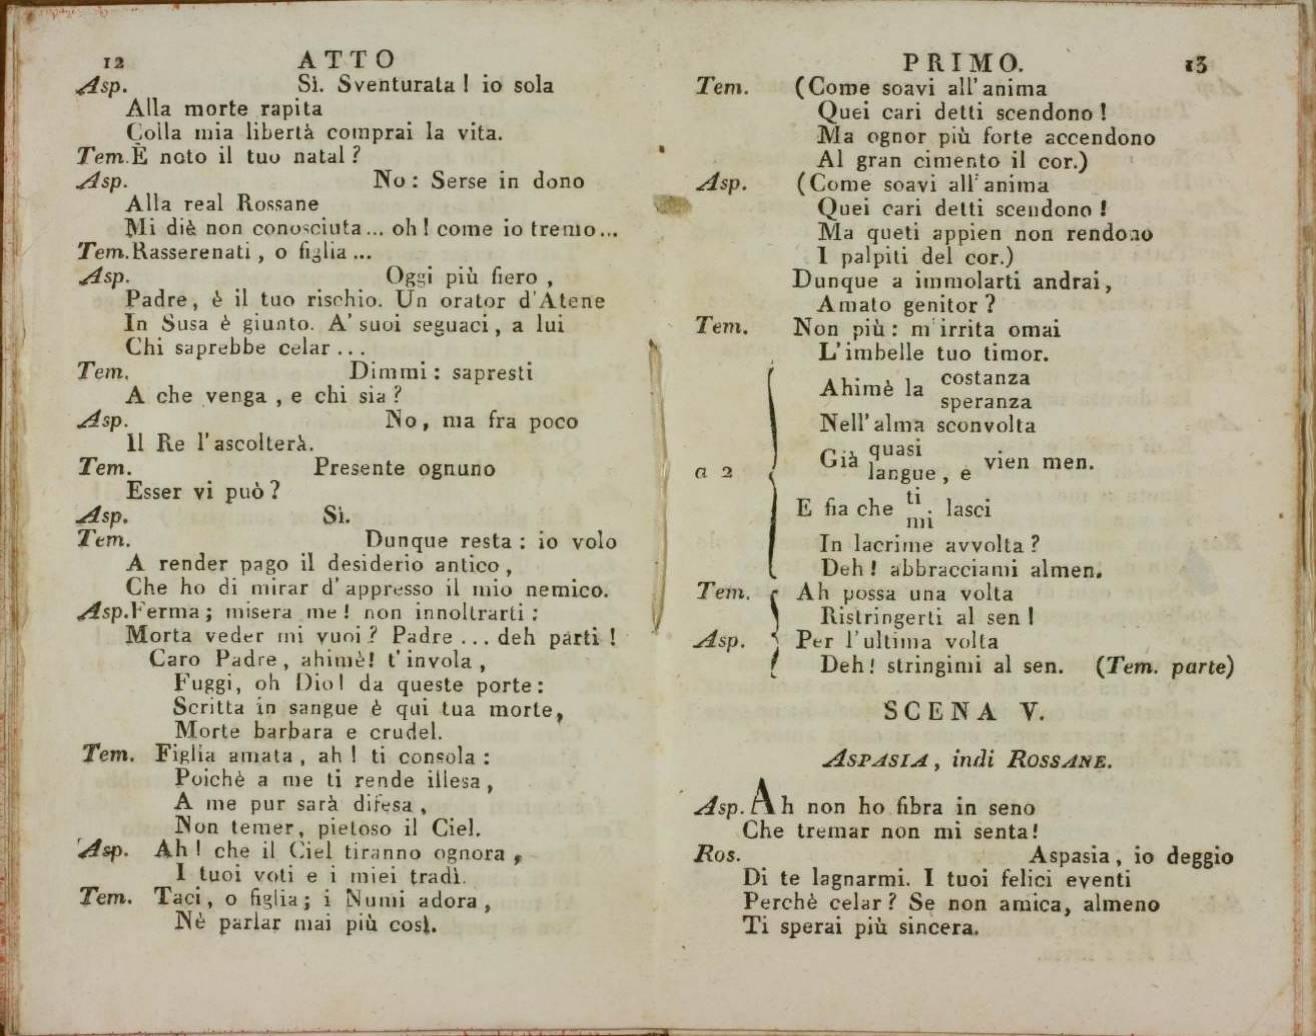 12 ATTO
Asp. Sì. Sventurata! io sola
Alla morte rapita
Colla mia libertà comprai la vita.
Tem. È noto il tuo natal?
Asp. No: Serse in dono
Alla real Rossane
Mi diè non conosciuta... oh! come io tremo...
Tem. Rasserenati, o figlia...
Asp. Oggi più fiero,
Padre, è il tuo rischio. Un orator d'Atene
In Susa è giunto. A' suoi seguaci, a lui
Chi saprebbe celar...
Tem. Dimmi: sapresti
A che venga, e chi sia?
Asp. No, ma fra poco
Il Re l'ascolterà.
Tem. Presente ognuno
Esser vi può?
Asp. Sì.
Tem. Dunque resta: io volo
A render pago il desiderio antico,
Che ho di mirar d'appresso il mio nemico.
Asp. Ferma; misera me! non innoltrarti:
Morta veder mi vuoi? Padre... deh parti!
Caro Padre, ahimè! t'invola,
Fuggi, oh Dio! da queste porte:
Scritta in sangue è qui tua morte,
Morte barbara e crudel.
Tem. Figlia amata, ah! ti consola:
Poichè a me ti rende illesa,
A me pur sarà difesa,
Non temer, pietoso il Ciel.
Asp. Ah! che il Ciel tiranno ognora,
I tuoi voti e i miei tradì.
Tem. Taci, o figlia; i Numi adora,
Nè parlar mai più così.
PRIMO. 13
Tem. (Come soavi all'anima
Quei cari detti scendono!
Ma ognor più forte accendono
Al gran cimento il cor.)
Asp. (Come soavi all'anima
Quei cari detti scendono!
Ma queti appien non rendono
I palpiti del cor.)
Dunque a immolarti andrai,
Amato genitor?
Tem. Non più: m'irrita omai
L'imbelle tuo timor.
a 2
Ahimè la costanza
speranza
Nell'alma sconvolta
Già quasi
langue, e vien men.
E fia che ti
mi lasci
In lacrime avvolta?
Deh! abbracciami almen.
Tem. Ah possa una volta
Ristringerti al sen!
Asp. Per l'ultima volta
Deh! stringimi al sen. (Tem. parte)
SCENA V.
ASPASIA, indi ROSSANE.
Asp. Ah non ho fibra in seno
Che tremar non mi senta!
Ros. Aspasia, io deggio
Di te lagnarmi. I tuoi felici eventi
Perchè celar? Se non amica, almeno
Ti sperai più sincera.